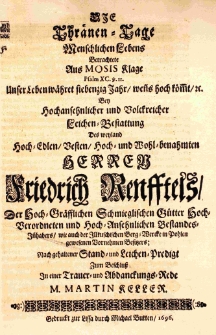 DIE
Thränen-Tage
Menschlichen Lebens
Betrachtete
Aus MOSIS Klage
Psalm XC. v. 11.
Unser Leben währet siebenzig Jahr/ wenns hoch kömt/ ꝛc.
Bey
Hochansehnlicher und Volckreicher
Leichen-Bestattung
Des weyland
Hoch-Edlen/ Vesten/ Hoch- und Wohl-benahmten
HERREN
Friedrich Renfftels/
Der Hoch-Gräfflichen Schmieglischen Gütter Hoch-
Verordneten und Hoch-Ansehnlichen Bestandes-
Inhabers/ wie auch der
gewesenen Vornehmen Besitzers;
Nach gehaltener Stand- und Leichen-Predigt
Zum Beschluß
In einer Trauer- und Abdanckungs-Rede
M. MARTIN KELLER.
Gedruckt zur Lissa durch Michael Bukken/ 1696.